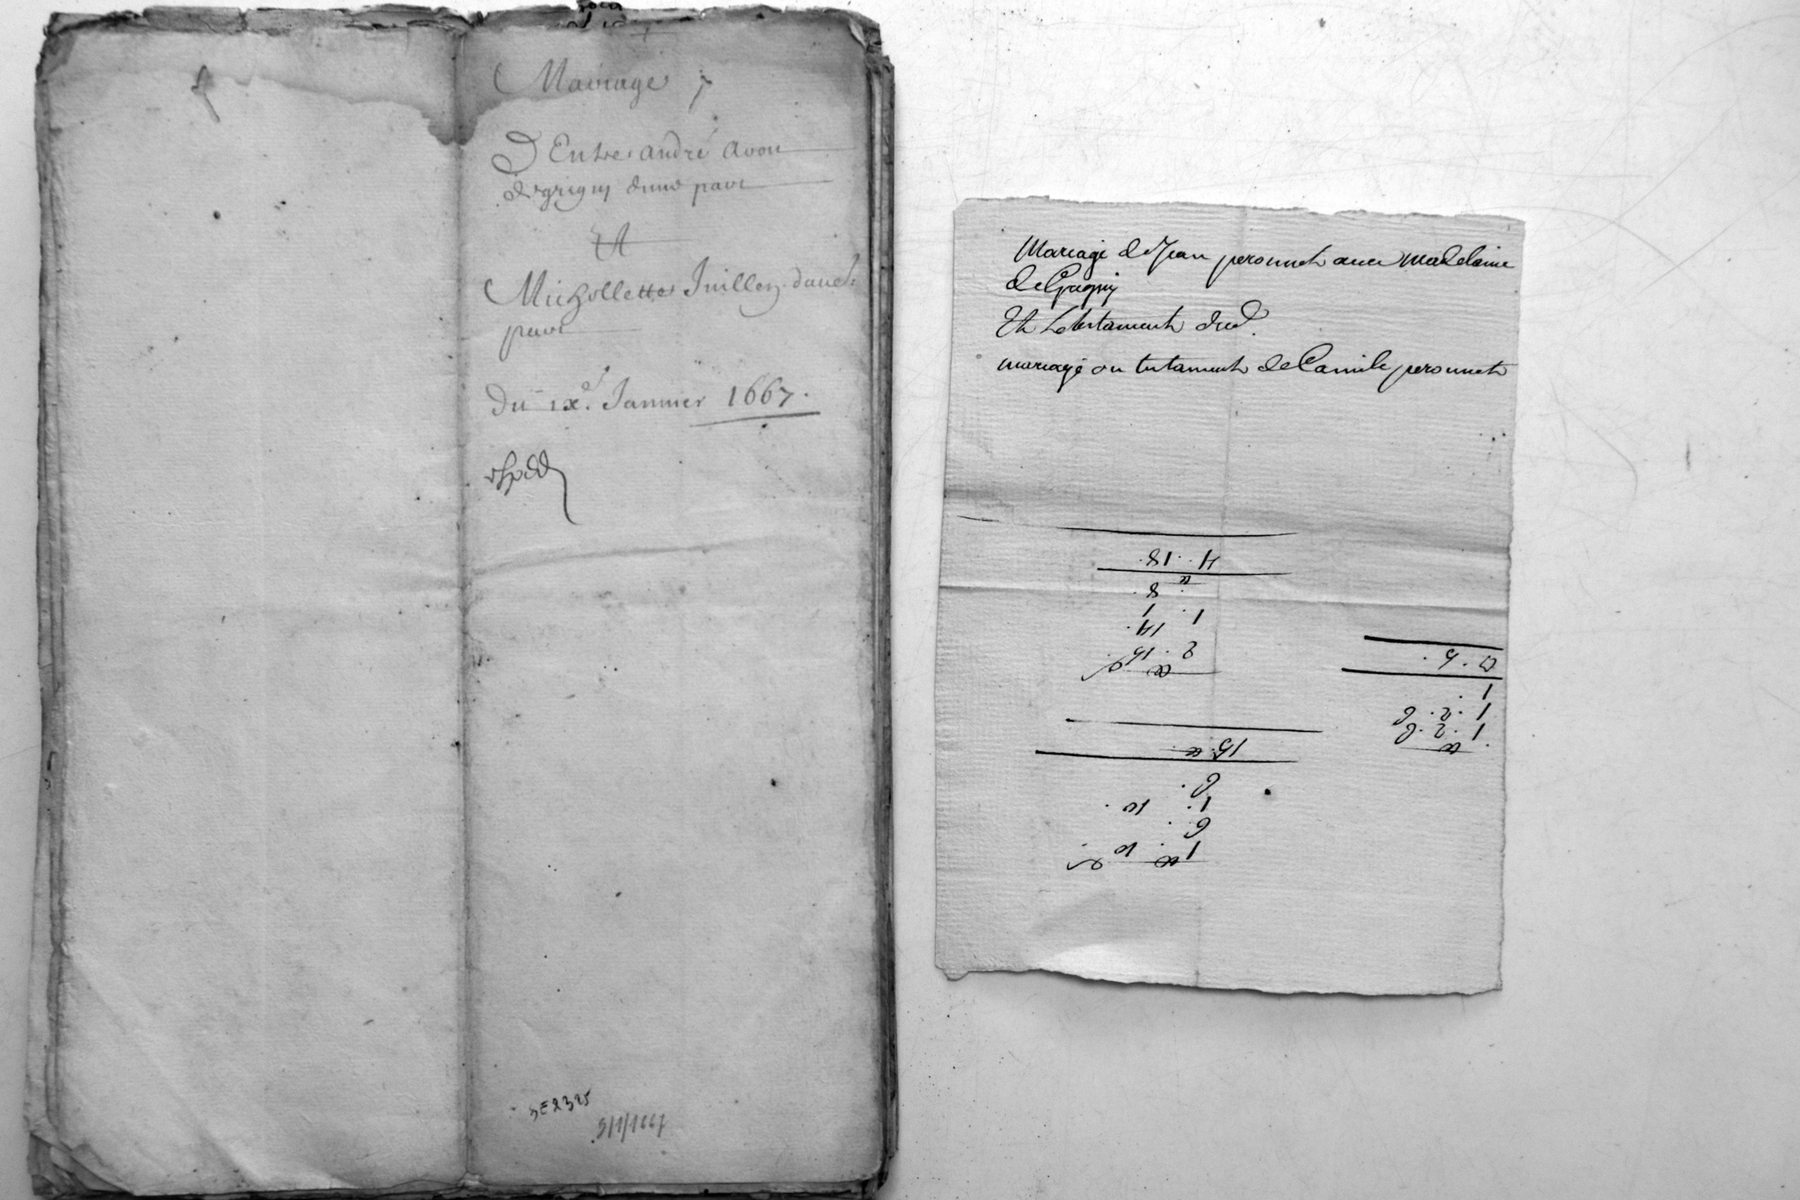 Mariage
D'Entre andré avon
de grigny d'une part
Et
Michollette Juilleny d'autre
part
Du ix.e Janvier 1667.
expdd
3E2325
5/1/1667
Mariage de Jean peronnet avec madelaine
de Grigny
Et Le testament dud.
mariage ou testament de Camile peronnet
4. 18.
8.
1. 1
14.
2. 15.
15.
6.
1. 10.
6.
1. 10
1.
1. 2. 6
1. 2. 6.